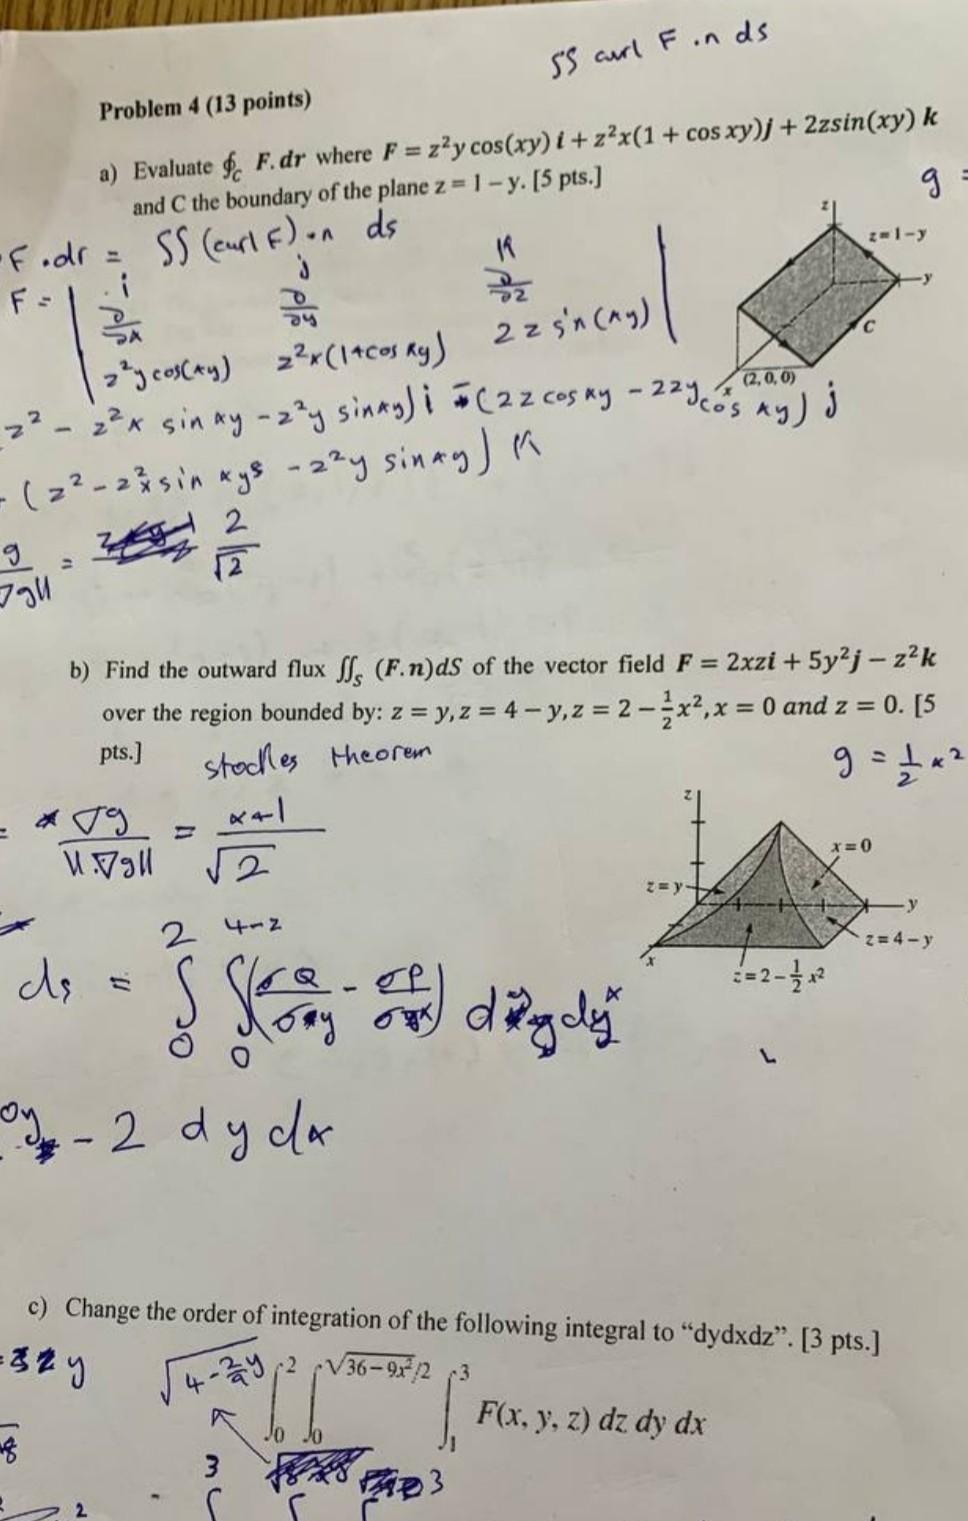 SS curl F .n ds
Problem 4 (13 points)
a) Evaluate ∮_C F.dr where F = z²y cos(xy) i + z²x(1 + cos xy)j + 2zsin(xy) k
and C the boundary of the plane z = 1 – y. [5 pts.]
g =
F.dr = SS (curl F).n ds
z
z=1-y
y
C
x
(2,0,0)
F = | i j k
∂/∂x ∂/∂y ∂/∂z
z²y cos(xy) z²x(1+cos xy) 2z sin(xy) |
z² - z²x sin xy - z²y sin xy) i - (2z cos xy - 2zy cos xy) j
(z² - z²x sin xy - z²y sin xy) k
g
∇g||
=
2
√2
b) Find the outward flux ∬_S (F.n)dS of the vector field F = 2xzi + 5y²j – z²k
over the region bounded by: z = y, z = 4 – y, z = 2 – ½x², x = 0 and z = 0. [5
pts.]
stockes theorem
g = ½ x²
= ∇g / ||∇g|| = x+1 / √2
z
x=0
z=y
y
z=4-y
x
z=2-½x²
ds = ∫₀² ∫₀^(4-z)
- 2 dy dx
c) Change the order of integration of the following integral to “dydxdz”. [3 pts.]
y
√4-
∫₀² ∫₀^(√36–9x²/2) ∫₁³ F(x, y, z) dz dy dx
3
3
2